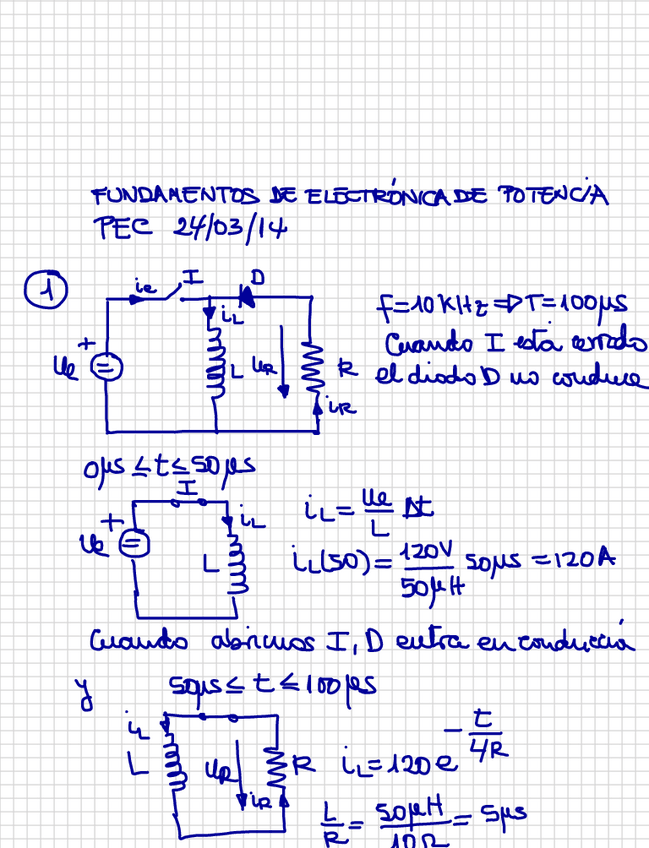 FUNDAMENTOS DE ELECTRÓNICA DE POTENCIA
PEC 24/03/14
1
ie I D
iL
+
Ue L UR R
iR
f=10KHz ⇒ T=100µs
Cuando I está cerrado
el diodo D no conduce
0µs ≤ t ≤ 50µs
I
+
iL
Ue L
iL = Ue/L Δt
iL(50) = 120V/50µH 50µs = 120A
Cuando abrimos I, D entra en conducción
y 50µs ≤ t ≤ 100µs
iL
L UR R
iR
iL = 120 e^(-t/4R)
L/R = 50µH/10Ω = 5µs